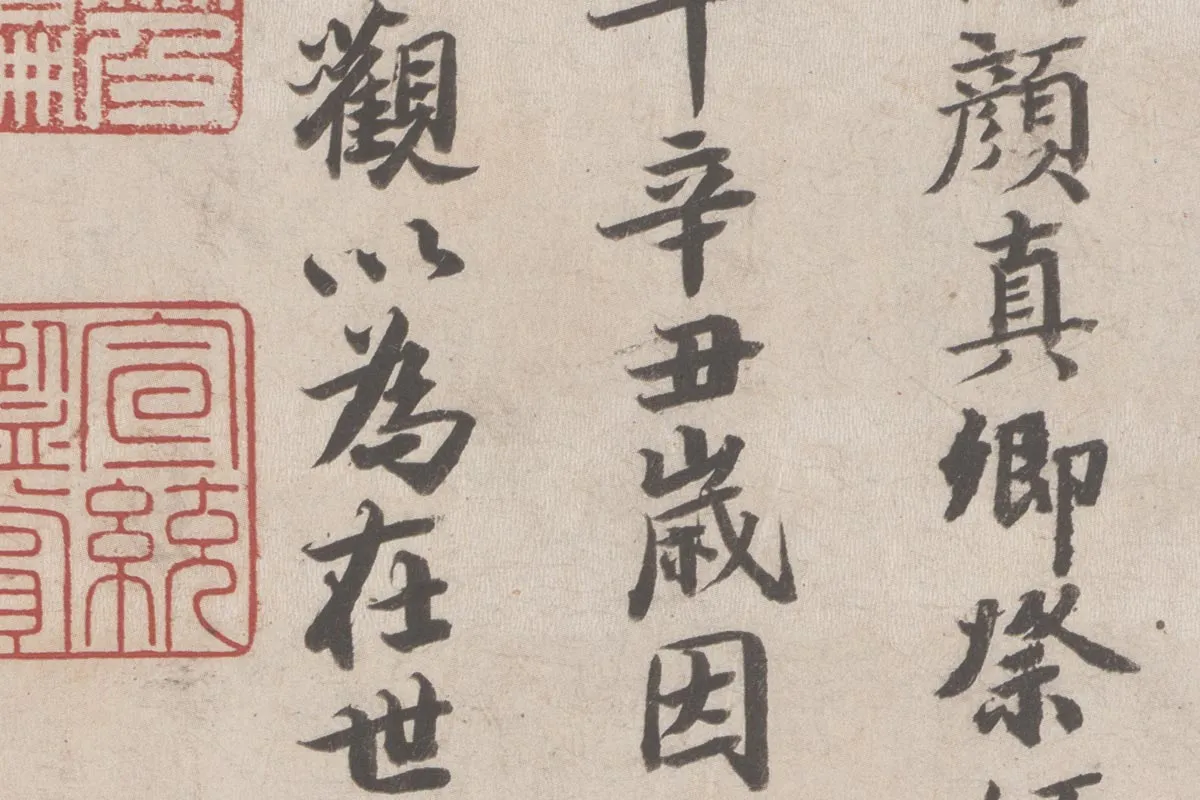 顏真卿祭
辛丑歲因
觀以為在世
宣統